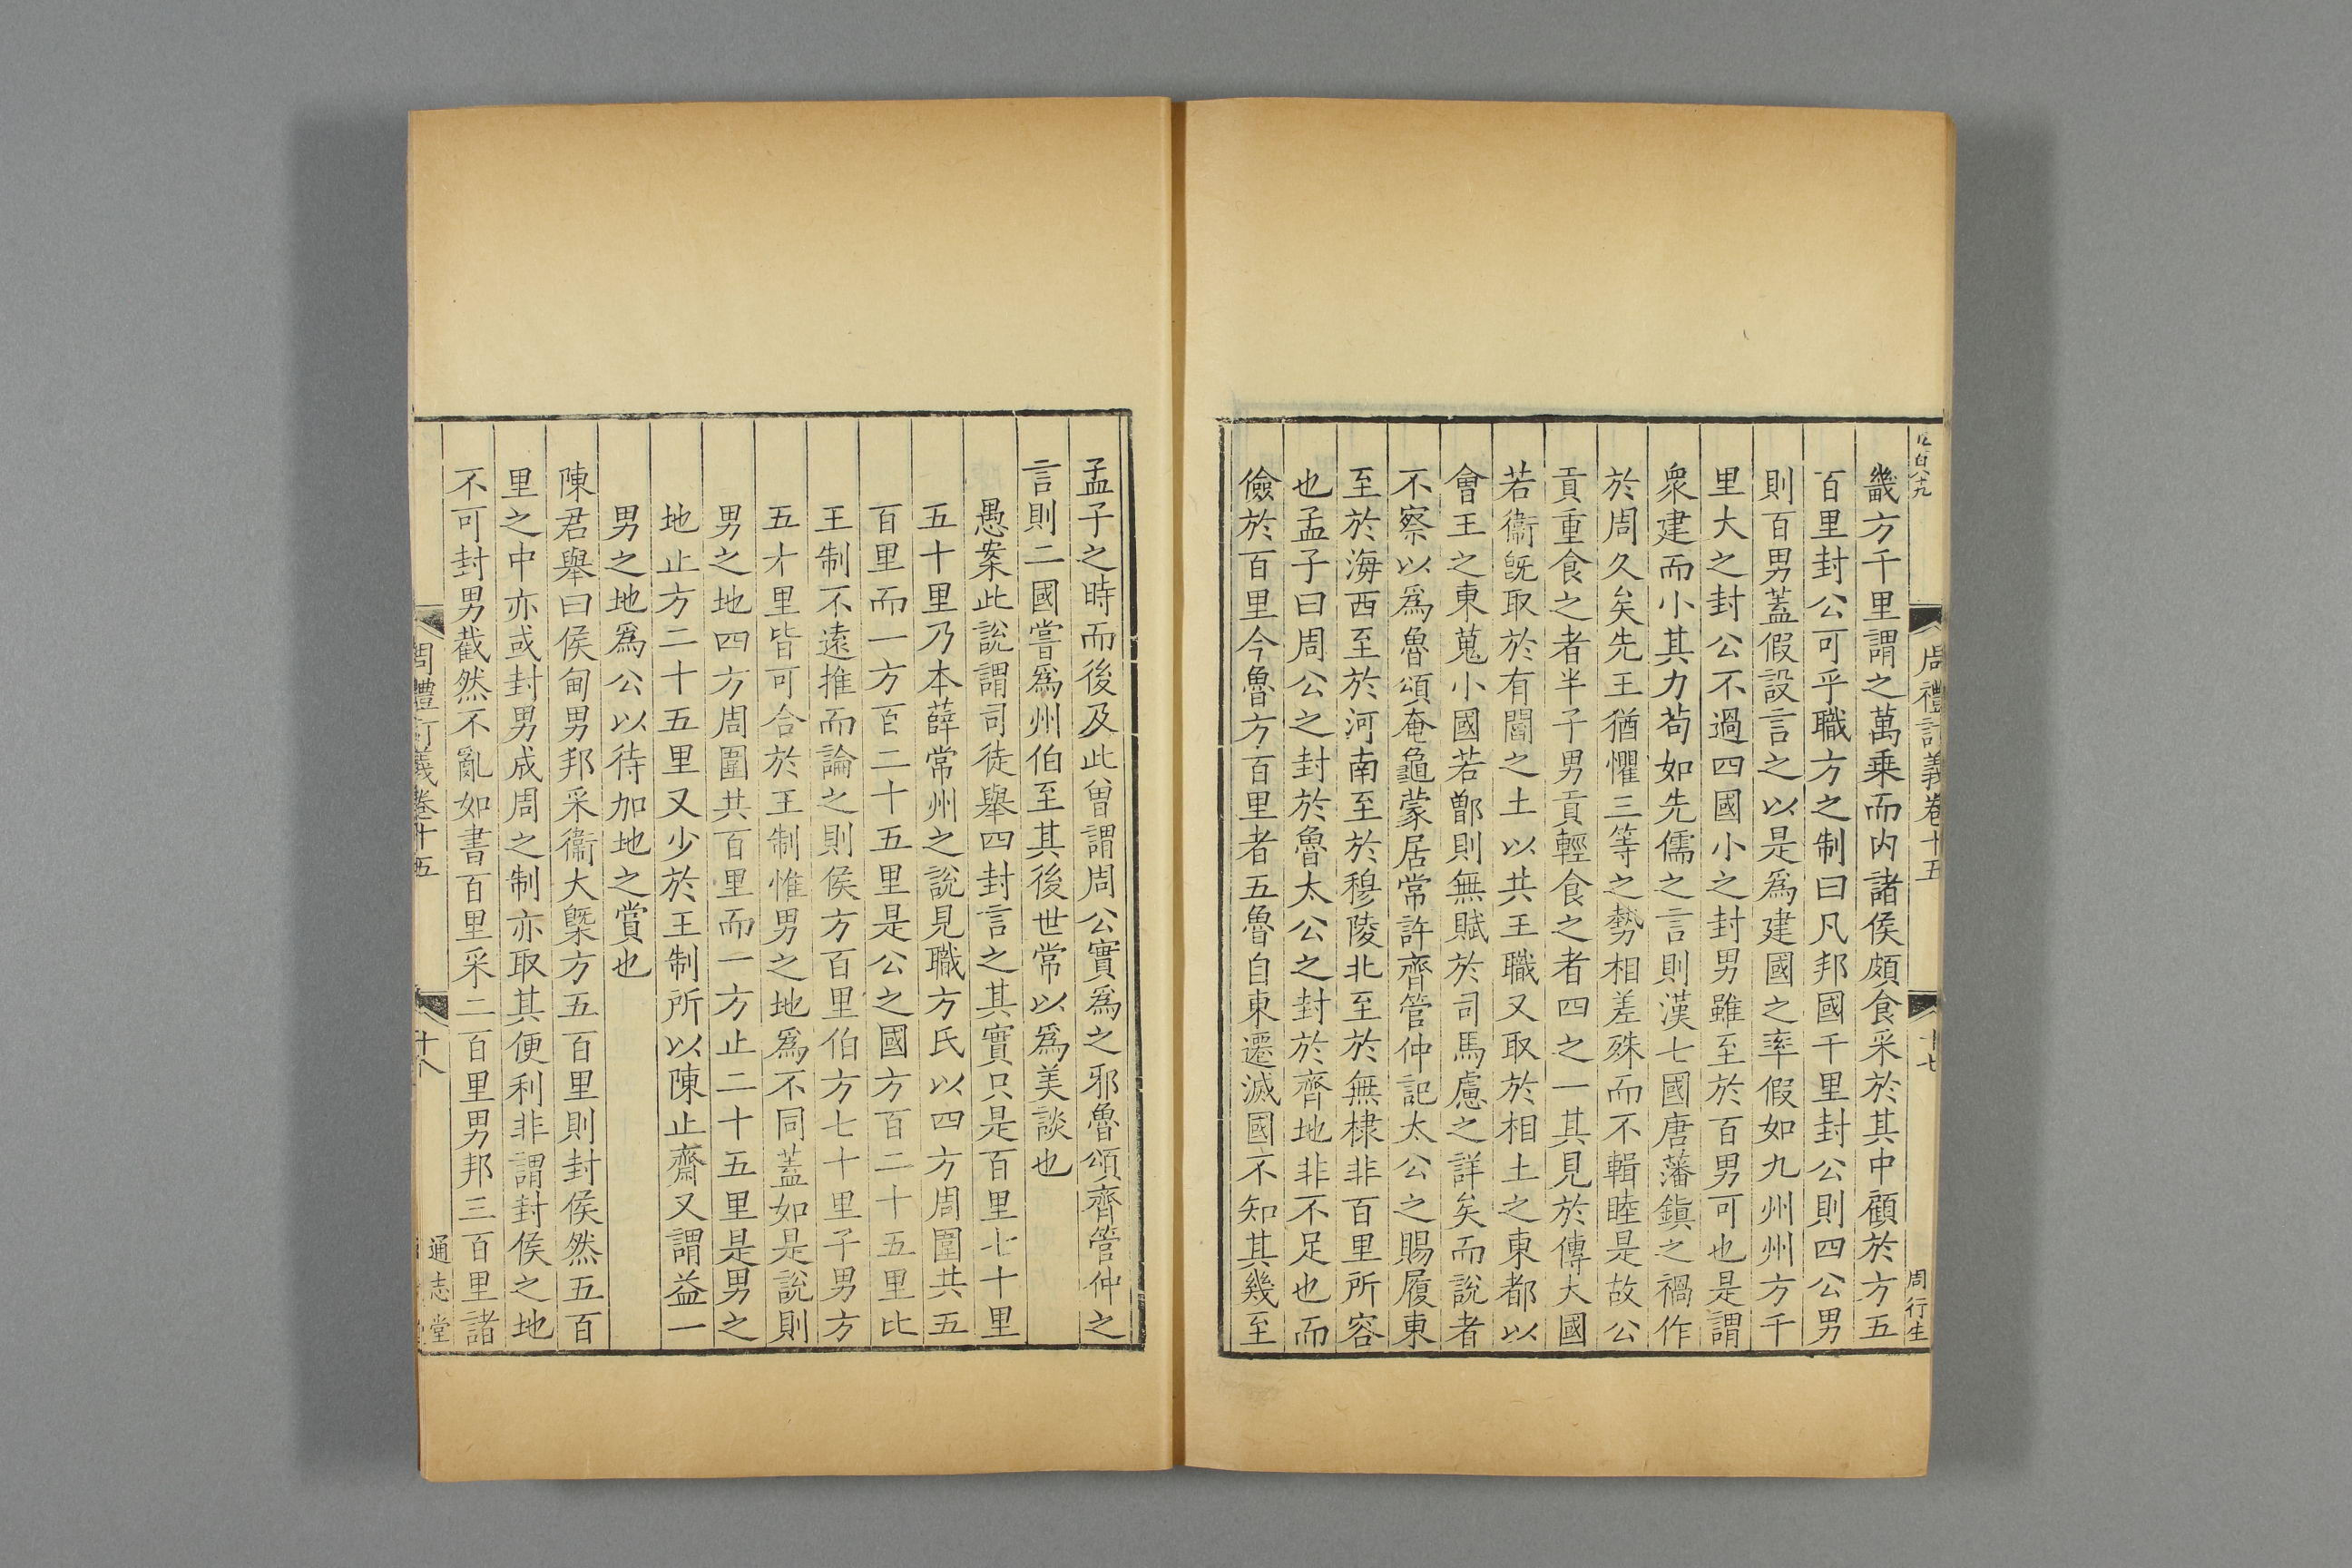 周禮訂義卷十五
十七
周行生
畿方千里謂之萬乗而内諸侯頗食采於其中顧於方五
百里封公可乎職方之制曰凡邦國千里封公則四公男
則百男蓋假設言之以是爲建國之率假如九州州方千
里大之封公不過四國小之封男雖至於百男可也是謂
衆建而小其力茍如先儒之言則漢七國唐藩鎮之禍作
於周久矣先王猶懼三等之勢相差殊而不輯睦是故公
貢重食之者半子男貢輕食之者四之一其見於傳大國
若衞旣取於有閻之土以共王職又取於相土之東都以
會王之東蒐小國若鄫則無賦於司馬慮之詳矣而說者
不察以爲魯頌奄龜蒙居常許齊管仲記太公之賜履東
至於海西至於河南至於穆陵北至於無棣非百里所容
也孟子曰周公之封於魯太公之封於齊地非不足也而
儉於百里今魯方百里者五魯自東遷滅國不知其幾至
孟子之時而後及此曾謂周公實爲之邪魯頌齊管仲之
言則二國嘗爲州伯至其後世常以爲美談也
愚案此説謂司徒舉四封言之其實只是百里七十里
五十里乃本薛常州之說見職方氏以四方周圍共五
百里而一方百二十五里是公之國方百二十五里比
王制不遠推而論之則侯方百里伯方七十里子男方
五才里皆可合於王制惟男之地爲不同蓋如是說則
男之地四方周圍共百里而一方止二十五里是男之
地止方二十五里又少於王制所以陳止齋又謂益一
男之地爲公以待加地之賞也
陳君舉曰侯甸男邦采衞大槩方五百里則封侯然五百
里之中亦或封男成周之制亦取其便利非謂封侯之地
不可封男截然不亂如書百里采二百里男邦三百里諸
周禮訂義卷十五
十八
通志堂